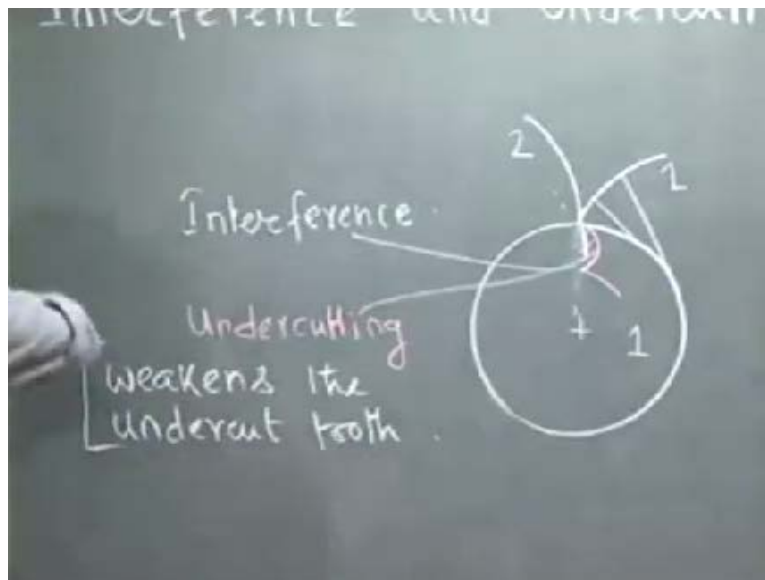 Interference and Undercutt
2
2
Interference
Undercutting
1
weakens the
undercut tooth.